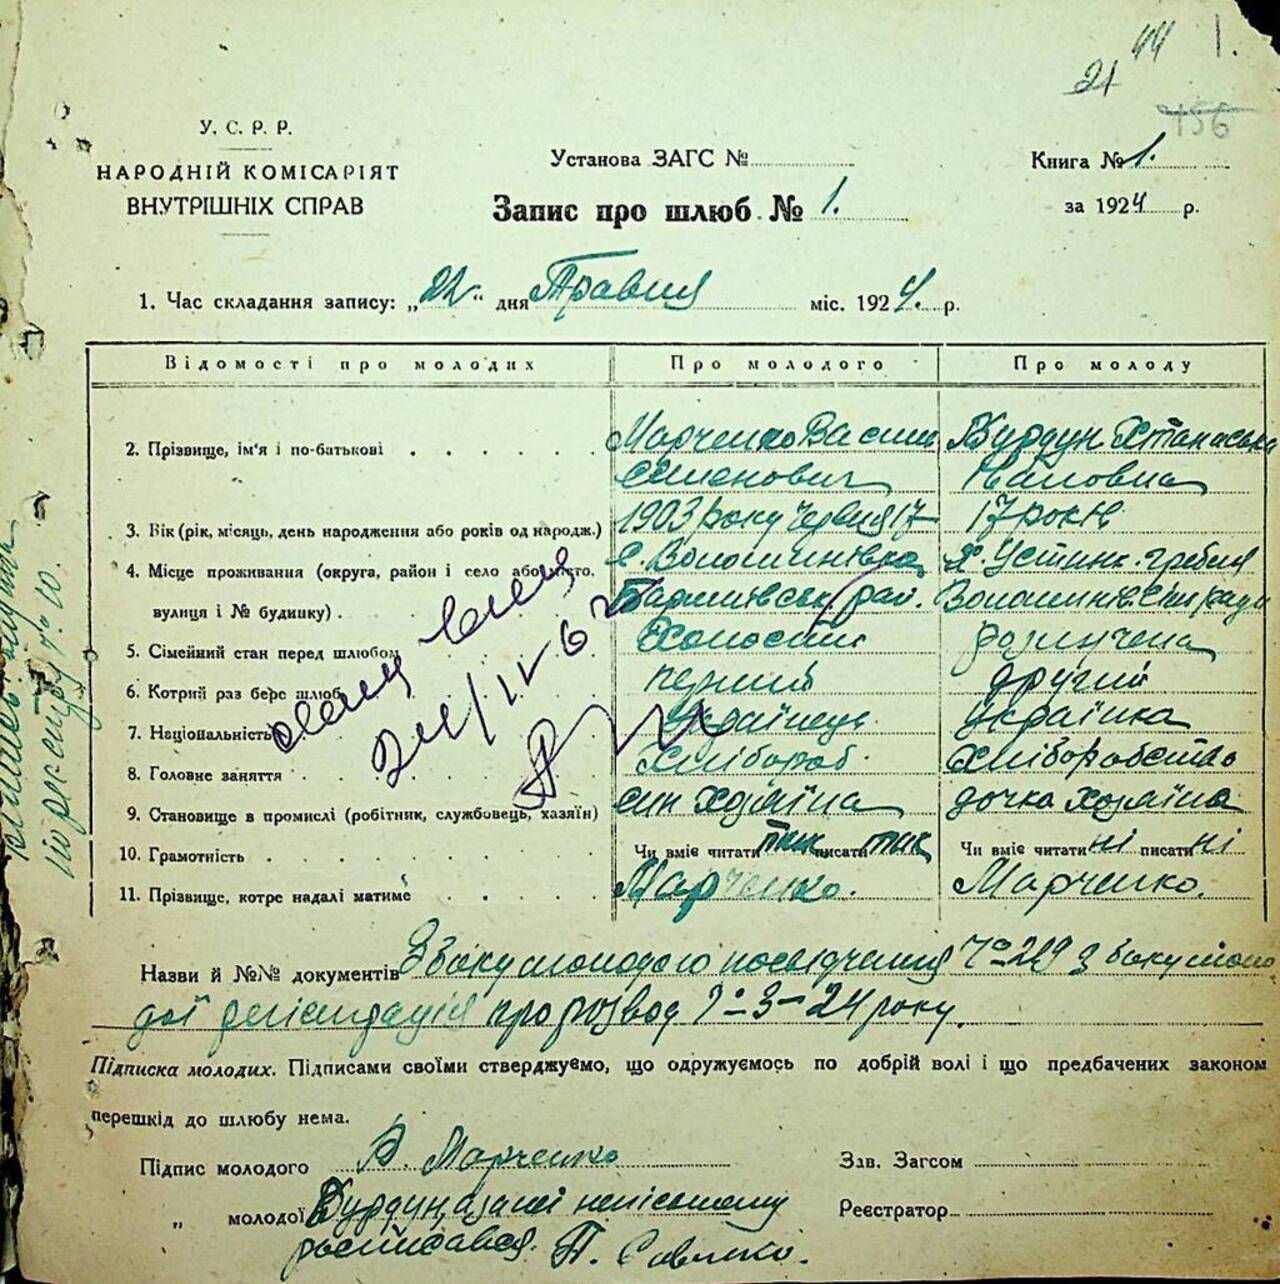 44 1.
21
156
У. С. Р. Р.
НАРОДНІЙ КОМІСАРІЯТ
ВНУТРІШНІХ СПРАВ
Установа ЗАГС №
Запис про шлюб № 1.
Книга № 1.
за 1924 р.
1. Час складання запису: „22“ дня Травня міс. 1924. р.
Відомості про молодих Про молодого Про молоду
2. Прізвище, ім'я і по-батькові Марченко Василь Курдун
Семенович Павловна
3. Вік (рік, місяць, день народження або років од народж.) 1903 року Червня 17 17 років
4. Місце проживання (округа, район і село або місто, х. Волошинівка х. Устинк. гребля
вулиця і № будинку) Баришівськ. рай. Волошинів. сільради
5. Сімейний стан перед шлюбом Холостий розлучена
6. Котрий раз бере шлюб перший другий
7. Національність Українець Українка
8. Головне заняття Хлібороб. Хліборобство
9. Становище в промислі (робітник, службовець, хазяїн) син хозяїна дочка хозяїна
10. Грамотність Чи вміє читати так писати так Чи вміє читати ні писати ні
11. Прізвище, котре надалі матиме Марченко. Марченко.
Назви й №№ документів З боку молодого посвідчення № 219 з боку моло
дої про розвод № 3-24 року.
Підписка молодих. Підписами своїми стверджуємо, що одружуємось по добрій волі і що предбачених законом
перешкід до шлюбу нема.
Підпис молодого В. Марченко Зав. Загсом
„ молодої Курдун, а за неї неписьмену Реєстратор
росписався П. Савенко.